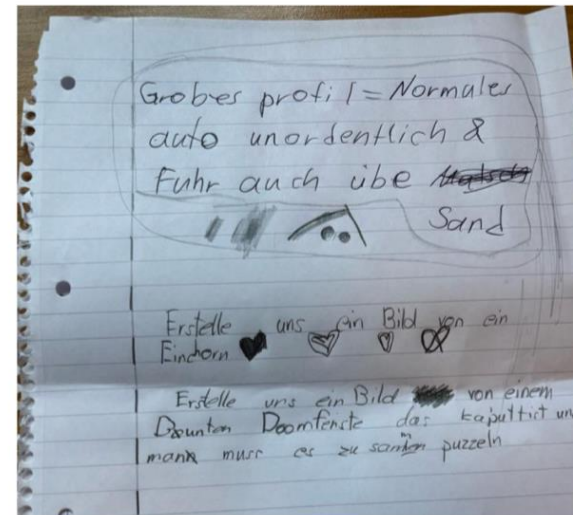 Grobes profil = Normales
auto unordentlich &
Fuhr auch übe
Sand
Erstelle uns ein Bild von ein
Einhorn
Erstelle uns ein Bild von einem
Doomfenste das kaputtist un
mann muss es zu samen puzzeln